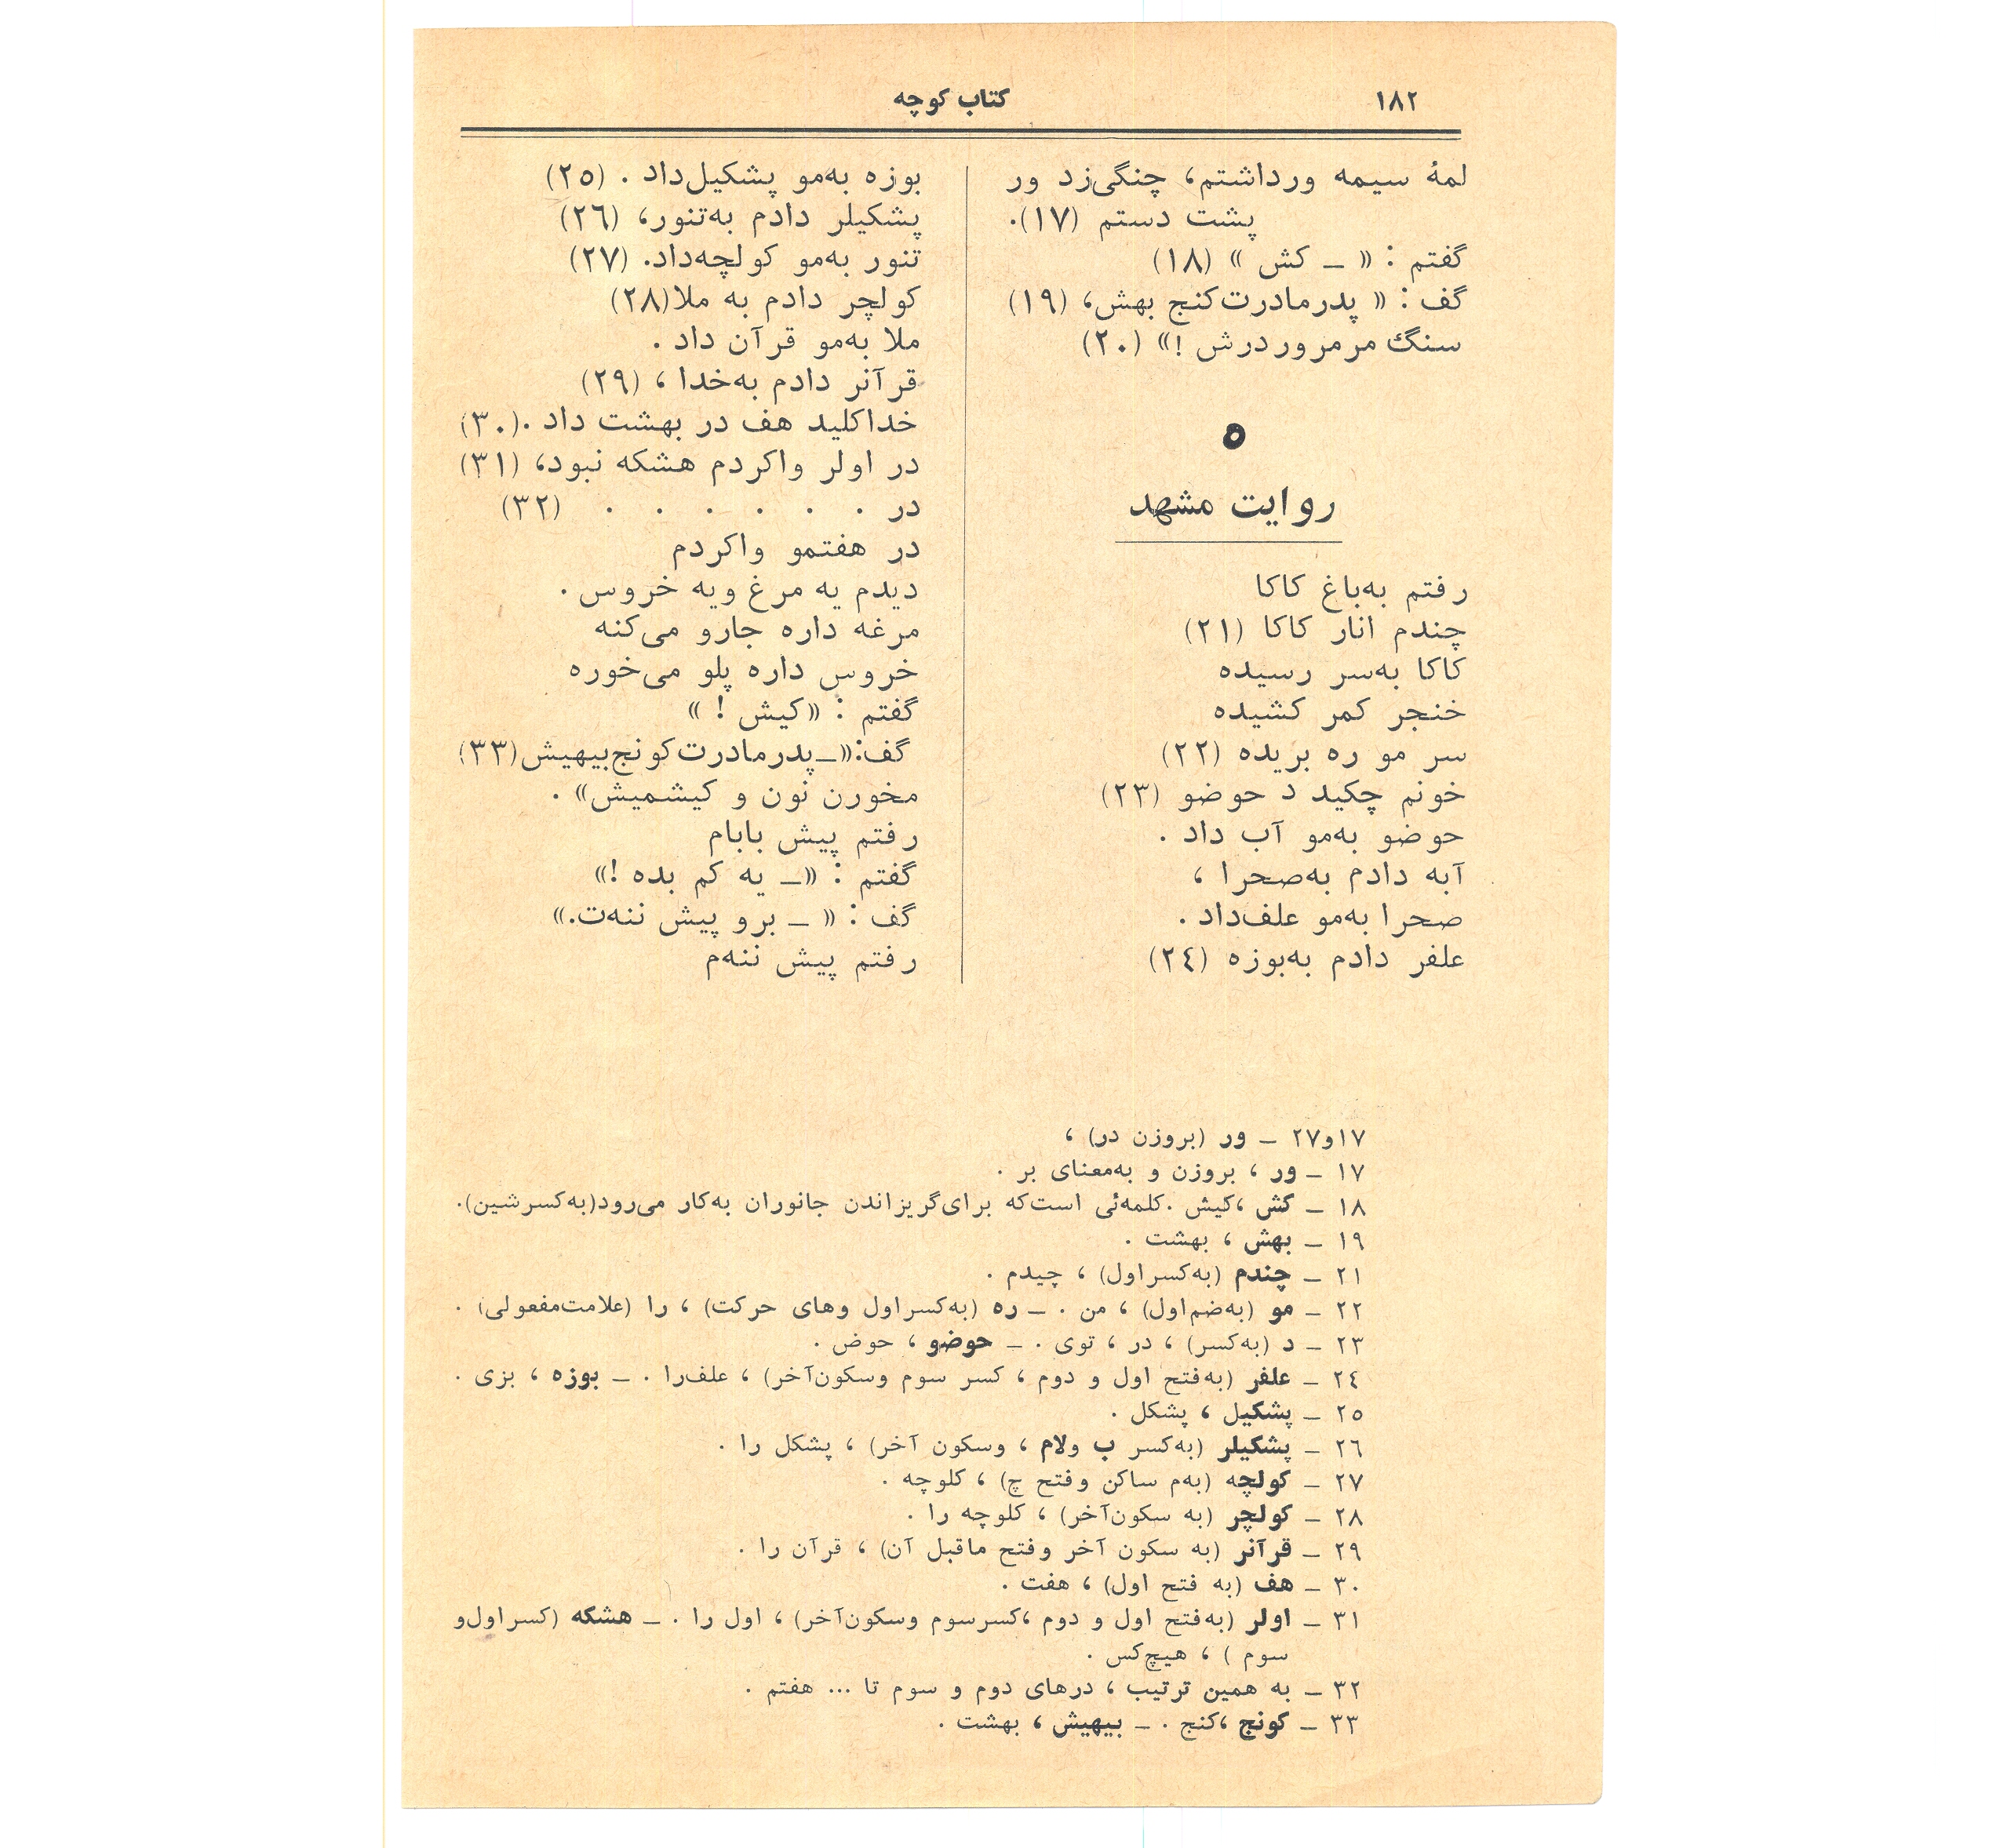 ۱۸۲
کتاب کوچه
لمهٔ سیمه ورداشتم، چنگی‌زد ور
پشت دستم (۱۷).
گفتم : « ـ کش » (۱۸)
گف : « پدرمادرت‌کنج بهش، (۱۹)
سنگ مرمر وردرش !» (۲۰)
۵
روایت مشهد
رفتم به‌باغ کاکا
چندم انار کاکا (۲۱)
کاکا به‌سر رسیده
خنجر کمر کشیده
سر مو ره بریده (۲۲)
خونم چکید د حوضو (۲۳)
حوضو به‌مو آب داد .
آبه دادم به‌صحرا ،
صحرا به‌مو علف‌داد .
علفر دادم به‌بوزه (۲٤)
بوزه به‌مو پشکیل‌داد . (۲۵)
پشکیلر دادم به‌تنور، (۲٦)
تنور به‌مو کولچه‌داد. (۲۷)
کولچر دادم به ملا(۲۸)
ملا به‌مو قرآن داد .
قرآنر دادم به‌خدا ، (۲۹)
خداکلید هف در بهشت داد .(۳۰)
در اولر واکردم هشکه نبود، (۳۱)
در . . . . . . (۳۲)
در هفتمو واکردم
دیدم یه مرغ ویه خروس .
مرغه داره جارو می‌کنه
خروس داره پلو می‌خوره
گفتم : «کیش ! »
گف:«ـپدرمادرت‌کونج‌بیهیش(۳۳)
مخورن نون و کیشمیش» .
رفتم پیش بابام
گفتم : «ـ یه کم بده !»
گف : « ـ برو پیش ننه‌ت.»
رفتم پیش ننه‌م
۱۷و۲۷ ـ ور (بروزن در) ،
۱۷ ـ ور ، بروزن و به‌معنای بر .
۱۸ ـ کش ،کیش .کلمه‌ئی است‌که برای‌گریزاندن جانوران به‌کار می‌رود(به‌کسرشین).
۱۹ ـ بهش ، بهشت .
۲۱ ـ چندم (به‌کسراول) ، چیدم .
۲۲ ـ مو (به‌ضم‌اول) ، من . ـ ره (به‌کسراول وهای حرکت) ، را (علامت‌مفعولی) .
۲۳ ـ د (به‌کسر) ، در ، توی . ـ حوضو ، حوض .
۲٤ ـ علفر (به‌فتح اول و دوم ، کسر سوم وسکون‌آخر) ، علف‌را . ـ بوزه ، بزی .
۲۵ ـ پشکیل ، پشکل .
۲٦ ـ پشکیلر (به‌کسر ب ولام ، وسکون آخر) ، پشکل را .
۲۷ ـ کولچه (به‌م ساکن وفتح چ) ، کلوچه .
۲۸ ـ کولچر (به سکون‌آخر) ، کلوچه را .
۲۹ ـ قرآنر (به سکون آخر وفتح ماقبل آن) ، قرآن را .
۳۰ ـ هف (به فتح اول) ، هفت .
۳۱ ـ اولر (به‌فتح اول و دوم ،کسرسوم وسکون‌آخر) ، اول را . ـ هشکه (کسراول‌و
سوم ) ، هیچ‌کس .
۳۲ ـ به همین ترتیب ، درهای دوم و سوم تا ... هفتم .
۳۳ ـ کونج ،کنج . ـ بیهیش ، بهشت .